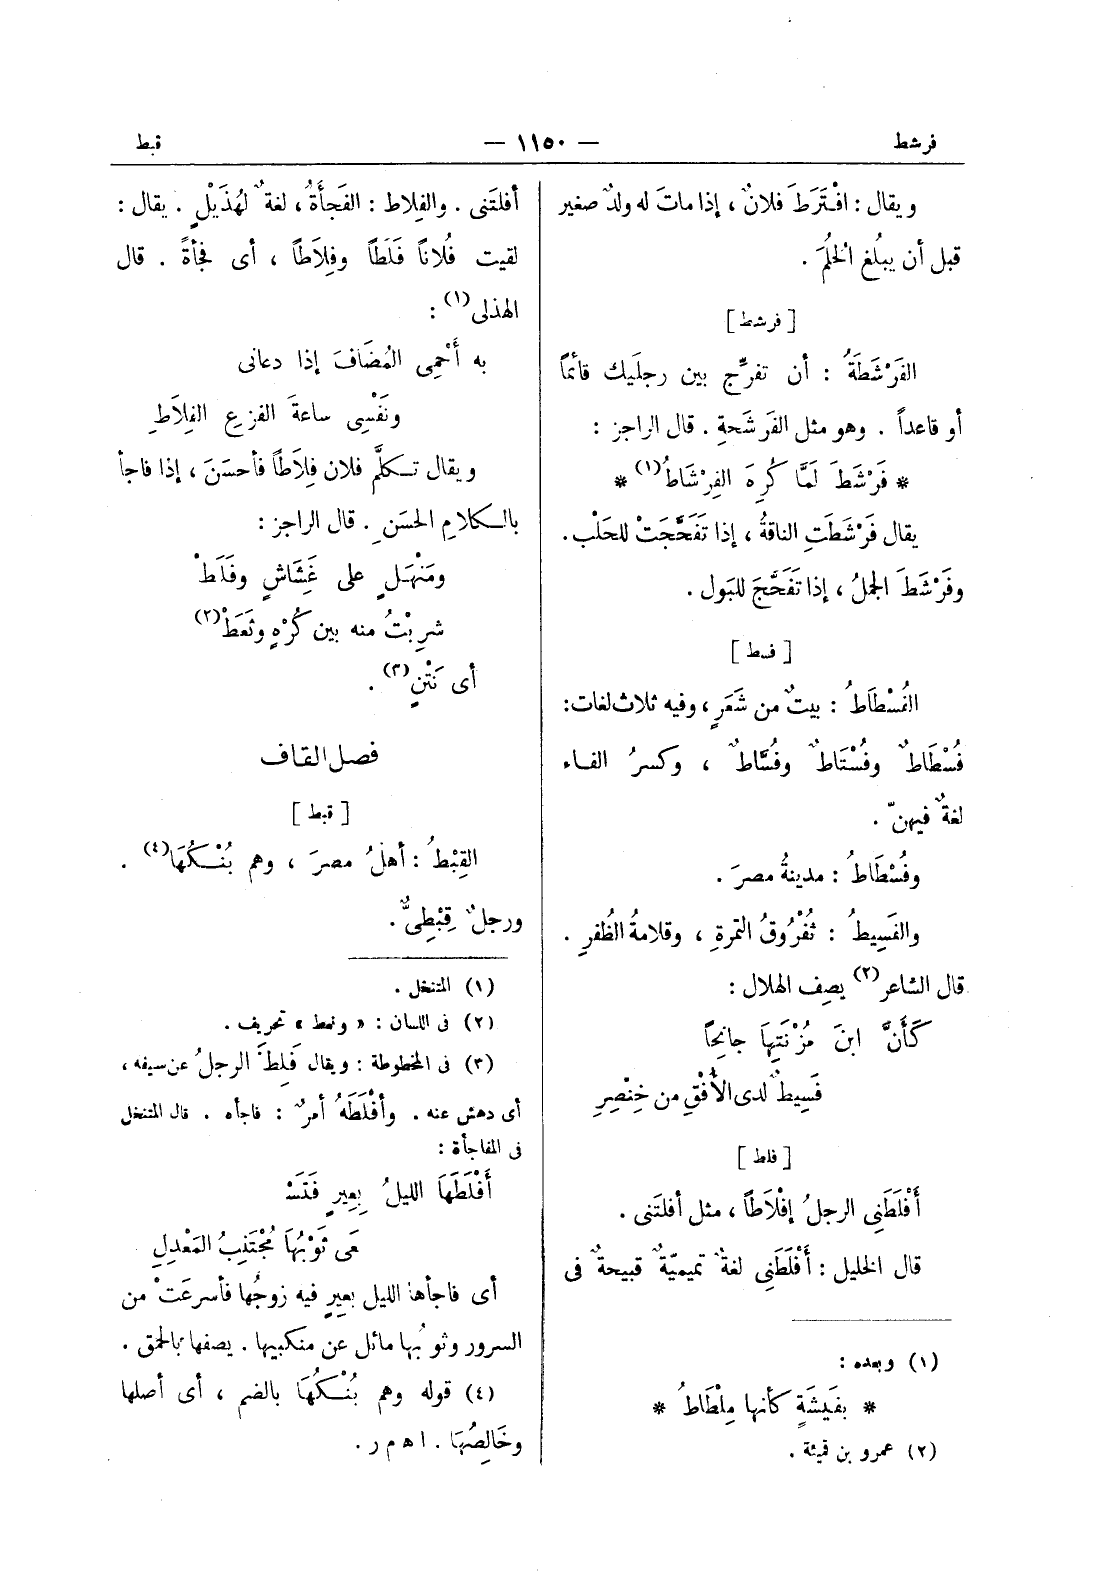 فرشط — ١١٥٠ — قبط
ويقال : افْتَرَطَ فلانٌ ، إذا ماتَ له ولدٌ صغير
قبل أن يبلُغ الْحُلُمَ .
[ فرشط ]
الفَرْشَطَةُ : أن تفرِّج بين رجلَيك قائمًا
أو قاعداً . وهو مثل الفَرشَحةِ . قال الراجز :
* فَرْشَطَ لَمَّا كُرِهَ الفِرْشَاطُ(١) *
يقال فَرْشَطَتِ الناقةُ ، إذا تَفَحَّجَتْ للحَلْب .
وفَرْشَطَ الجملُ ، إذا تَفَحَّجَ للبَول .
[ فسط ]
الفُسْطَاطُ : بيتٌ من شَعَرٍ ، وفيه ثلاث لغات :
فُسْطَاطٌ وفُسْتَاطٌ وفُسَّاطٌ ، وكسرُ الفاء
لغةٌ فيهنّ .
وفُسْطَاطُ : مدينةُ مصرَ .
والفَسِيطُ : ثُفْرُوقُ التمرةِ ، وقلامةُ الظُفرِ .
قال الشاعر(٢) يصِف الهلال :
كَأَنَّ ابنَ مُزْنَتِهَا جانِحًا
فَسِيطٌ لدى الأُفْقِ من خِنْصِرِ
[ فلط ]
أَفْلَطَنِى الرجلُ إفْلَاطاً ، مثل أفلتَنى .
قال الخليل : أَفْلَطَنِى لغةٌ تميميّةٌ قبيحةٌ فى
(١) وبعده :
* بفَيشَةٍ كأنها مِلْطَاطُ *
(٢) عمرو بن قميئة .
أفلتَنى . والفِلاط : الفَجأَةُ ، لغةٌ لهُذَيْلٍ . يقال :
لقيت فُلاناً فَلَطاً وفِلاَطاً ، أى فجأةً . قال
الهذلى(١) :
به أَحْمِى المُضَافَ إذا دعانى
ونَفْسِى ساعةَ الفزعِ الفِلاَطِ
ويقال تكلَّم فلان فِلاَطاً فأحسَنَ ، إذا فاجأ
بالكلامِ الحسَنِ . قال الراجز :
ومَنْهَلٍ على غِشَاشٍ وفَلَطْ
شرِبْتُ منه بين كُرْهٍ وثَعَطْ(٢)
أى نَتْنٍ(٣) .
فصل القاف
[ قبط ]
القِبْطُ : أهلُ مصرَ ، وهم بُنْكُهَا(٤) .
ورجلٌ قِبْطِىٌّ .
(١) المتنخل .
(٢) فى اللسان : « ونعط » تحريف .
(٣) فى المخطوطة : ويقال فَلِطَ الرجلُ عن سيفه ،
أى دهش عنه . وأَفْلَطَهُ أمرٌ : فاجأه . قال المتنخل
فى المفاجأة :
أَفْلَطَهَا الليلُ بِعِيرٍ فَتَسْـ
عَى ثَوْبُهَا مُجْتَنِبُ المَعْدِلِ
أى فاجأها الليل بعِيرٍ فيه زوجُها فأسرعَتْ من
السرور وثوبُها مائل عن منكبيها . يصفها بالحمق .
(٤) قوله وهم بُنْكُهَا بالضم ، أى أصلها
وخَالِصُهَا . ا ه م ر .